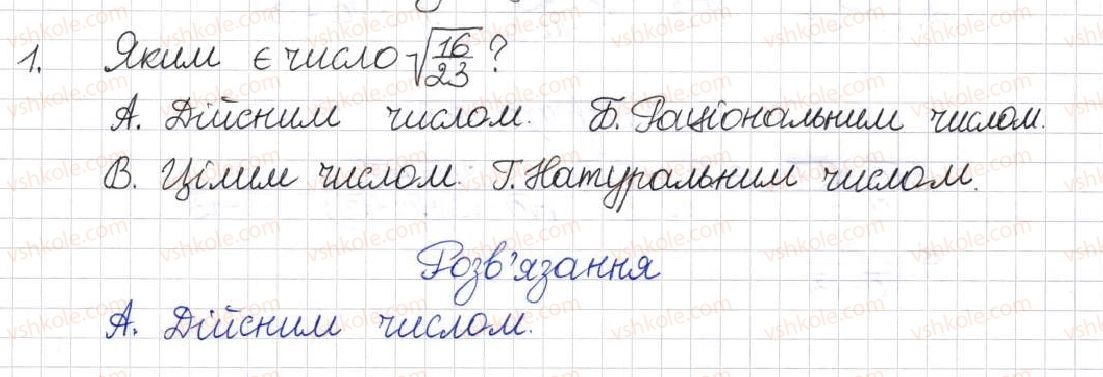 1. Яким є число √16/23?
А. Дійсним числом. Б. Раціональним числом.
В. Цілим числом. Г. Натуральним числом.
Розв'язання
А. Дійсним числом.